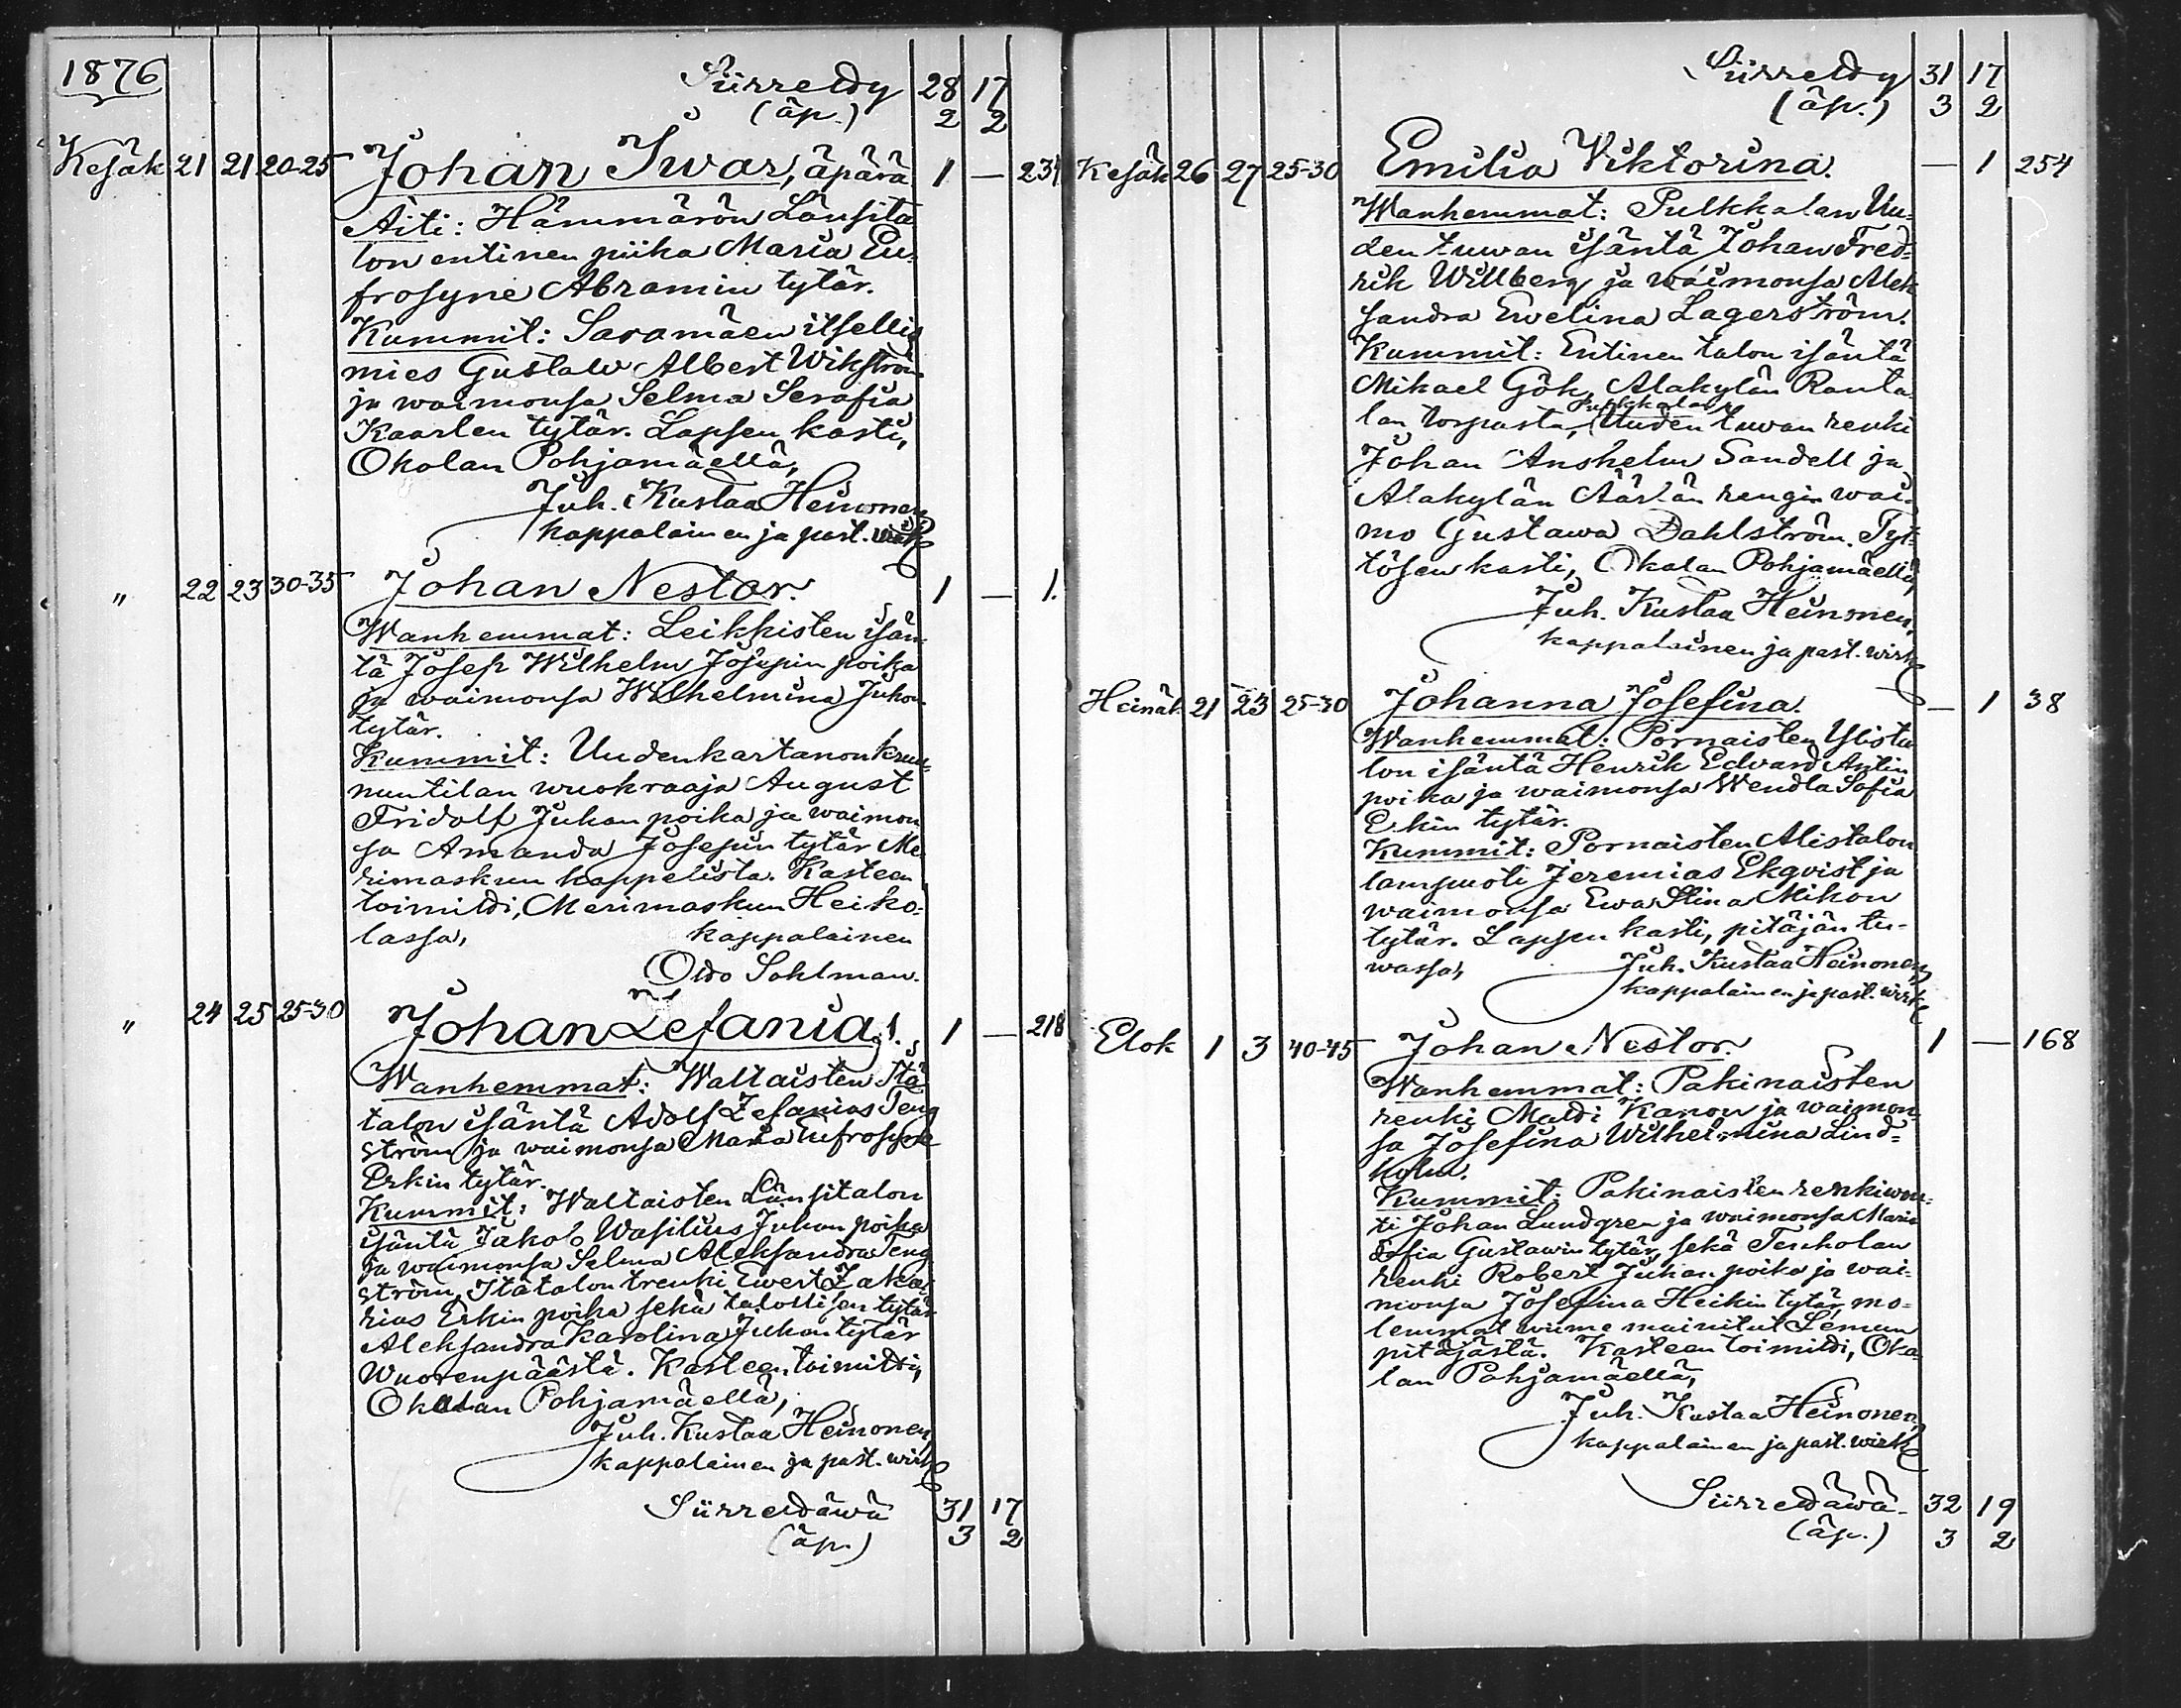 1876
Siirreldy 28 17
(äp.) 2 2
Kesäk 21 21 20-25 Johan Iwar, äpärä 1 — 231
Äiti: Hämmärön Länsita
lon entinen piika Maria Eu-
frosyne Abramin tytär.
Kummit: Saramäen itsellis
mies Gustaw Albert Wikström
ja waimonsa Selma Serafia
Kaarlen tytär. Lapsen kasti,
Okolan Pohjamäellä,
Juh. Kustaa Heinonen
kappalainen ja past. wirk
" 22 23 30-35 Johan Nestor. 1 — 1.
Wanhemmat: Leikkisten isän-
tä Josep Wilhelm Josepin poika
ja waimonsa Wilhelmina Juhon
tytär.
Kummit: Uudenkartanon kruu-
nuntilan wuokraaja August
Fridolf Juhan poika ja waimon
sa Amanda Josepin tytär Me-
rimaskun kappelista. Kasteen
toimitti, Merimaskun Heiko-
lassa, kappalainen
Otto Sohlman.
" 24 25 25-30 Johan Zefanias. 1 — 218
Wanhemmat: Waltaisten Itä
talon isäntä Adolf Zefanias Teng
ström ja waimonsa Maria Eufrosyne
Erkin tytär.
Kummit: Waltaisten Länsitalon
isäntä Jakob Wasilius Juhan poika
ja waimonsa Selma Aleksandra Teng
ström, Itätalon trenki Ewert Zaka-
rias Erkin poika sekä talollisen tytär
Aleksandra Karolina Juhan tytär
Wuorenpäästä. Kasteen toimitti,
Okolan Pohjamäellä,
Juh. Kustaa Heinonen,
kappalainen ja past. wirk
Siirreldäwä 31 17
(äp.) 3 2
Siirreldy 31 17
(äp.) 3 2
Kesäk 26 27 25-30 Emilia Viktorina. — 1 254
Wanhemmat: Pulkkalan Uu-
den tuwan isäntä Johan Fred-
rik Willberg ja waimonsa Alek
sandra Ewelina Lagerström.
Kummit: Entinen talon isäntä
Mikael Gök, Alakylän Ranta
Pulkkalan
lan torpasta, Uuden tuwan renki
Johan Anshelm Sandell ja
Alakylän Äärlän rengin wai-
mo Gustawa Dahlström. Tyt-
tösen kasti, Okolan Pohjamäellä,
Juh. Kustaa Heinonen,
kappalainen ja past. wirk
Heinäk. 21 23 25-30 Johanna Josefina. — 1 38
Wanhemmat: Pornaisten Ylista
lon isäntä Henrik Edvard Antin
poika ja waimonsa Wendla Sofia
Erkin tytär.
Kummit: Pornaisten Alistalon
lampuoti Jeremias Ekqvist ja
waimonsa Ewa Stina Mikon
tytär. Lapsen kasti, pitäjän tu-
wassa, Juh. Kustaa Heinonen,
kappalainen ja past. wirk
Elok 1 3 40-45 Johan Nestor. 1 — 168
Wanhemmat: Pakinaisten
renki Matti Kanon ja waimon
sa Josefina Wilhelmina Lind-
holm.
Kummit: Pakinaisten renkiwou-
ti Johan Lundgren ja waimonsa Maria
Sofia Gustawin tytär, sekä Tenholan
renki Robert Juhan poika ja wai-
monsa Josefina Heikin tytär, mo-
lemmat wiime mainitut Lemun
pitäjästä. Kasteen toimitti, Oko-
lan Pohjamäellä,
Juh. Kustaa Heinonen,
kappalainen ja past. wirk
Siirreldäwä 32 19
(äp.) 3 2